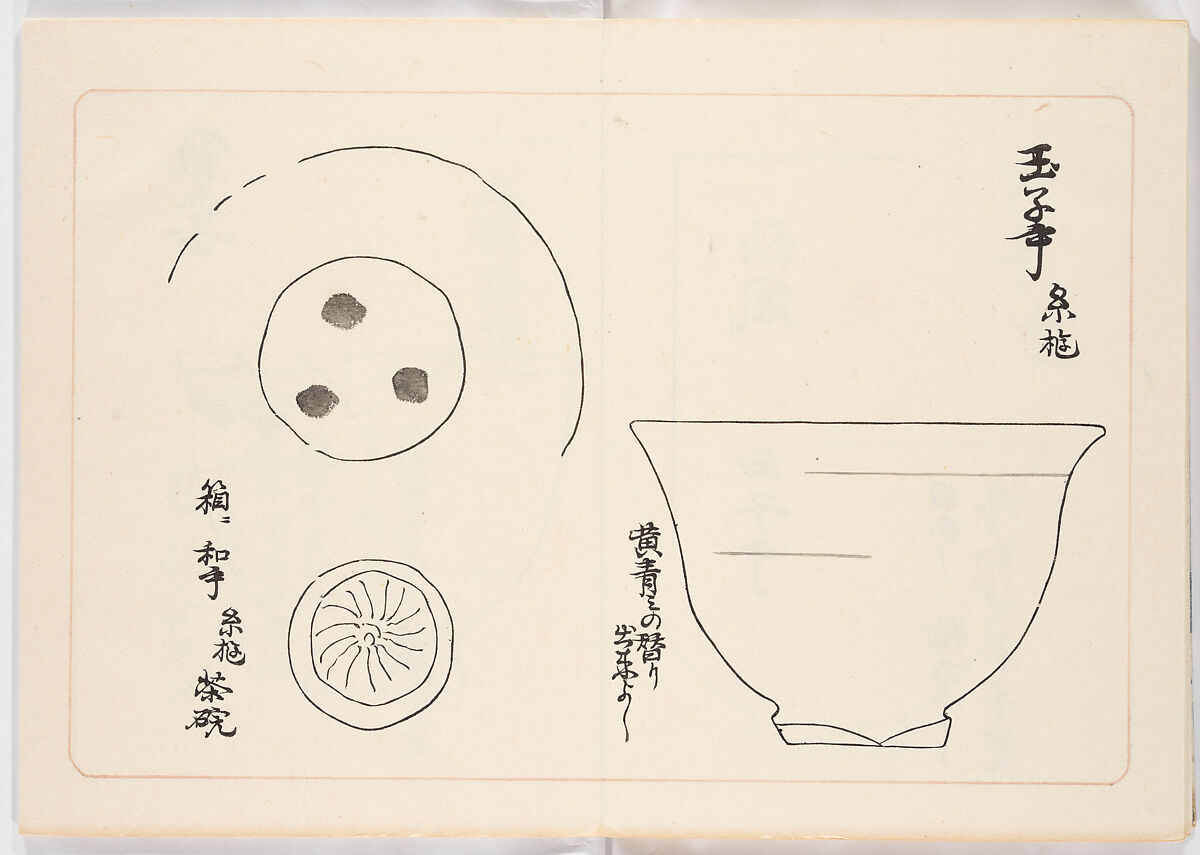 玉子手
糸遊
黄青ミの替り
出来よし
箱ニ
和手
糸遊
茶碗